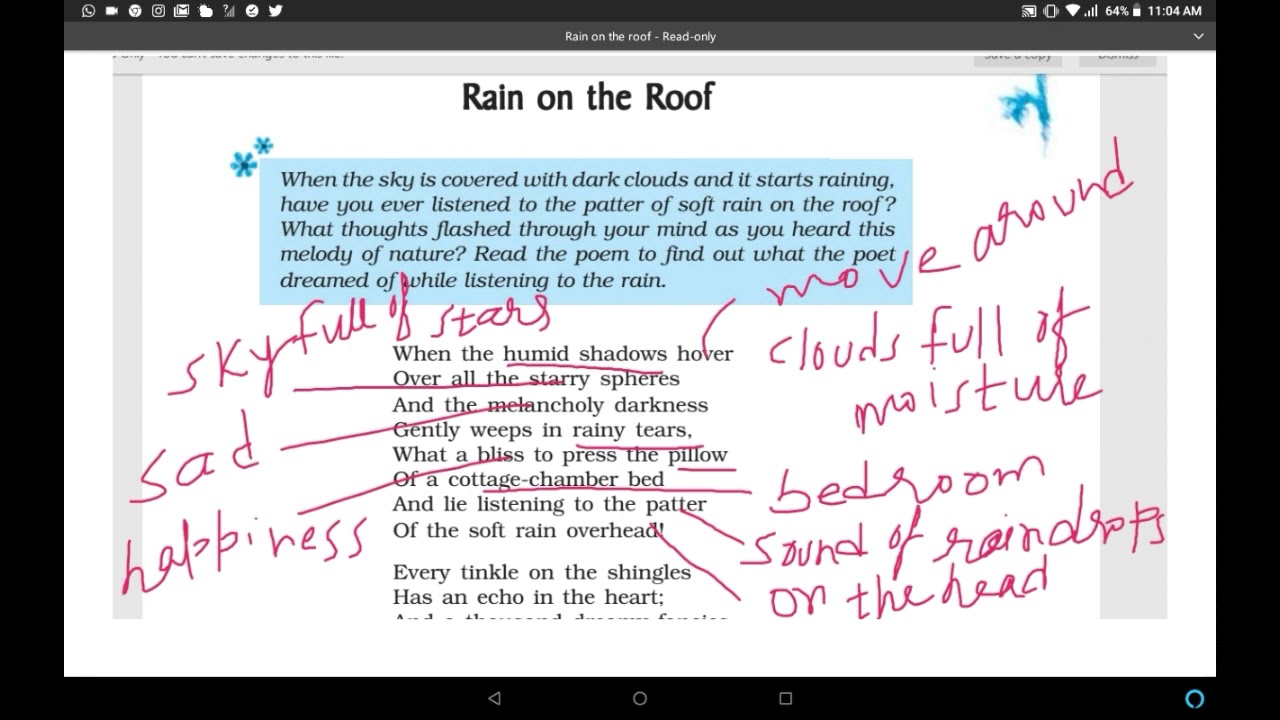 64% 11:04 AM
Rain on the roof - Read-only
Only You can't save changes to this file. Save a copy Dismiss
Rain on the Roof
When the sky is covered with dark clouds and it starts raining,
have you ever listened to the patter of soft rain on the roof?
What thoughts flashed through your mind as you heard this
melody of nature? Read the poem to find out what the poet
dreamed of while listening to the rain.
move around
sky full of stars
clouds full of
moisture
When the humid shadows hover
Over all the starry spheres
And the melancholy darkness
Gently weeps in rainy tears,
What a bliss to press the pillow
Of a cottage-chamber bed
And lie listening to the patter
Of the soft rain overhead!
sad
happiness
bedroom
sound of raindrops
on the head
Every tinkle on the shingles
Has an echo in the heart;
And a thousand dreamy fancies